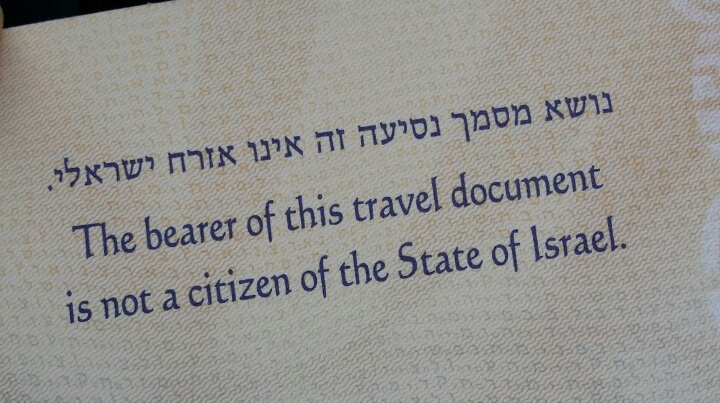 נושא מסמך נסיעה זה אינו אזרח ישראלי.
The bearer of this travel document
is not a citizen of the State of Israel.